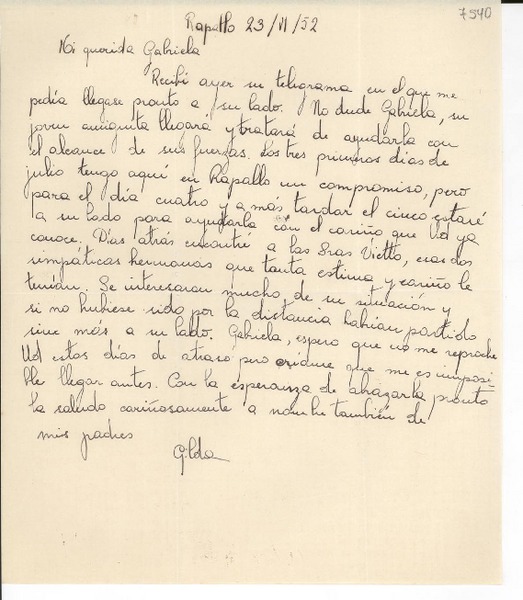 7540
Rapallo 23/VI/52
Mi querida Gabriela
Recibí ayer su telegrama en el que me
pedía llegase pronto a su lado. No dude Gabriela, su
joven amiguita llegará y tratará de ayudarla con
el alcance de sus fuerzas. Los tres primeros días de
julio tengo aquí en Rapallo un compromiso, pero
para el día cuatro y a más tardar el cinco estaré
a su lado para ayudarla con el cariño que Ud ya
conoce. Días atrás encontré a las Sras Vietto, esas dos
simpáticas hermanas que tanta estima y cariño le
tenían. Se interesaron mucho de su situación y
si no hubiese sido por la distancia habían partido
sine más a su lado. Gabriela, espero que no me reproche
Ud estos días de atraso pero créame que me es imposi
ble llegar antes. Con la esperanza de abrazarla pronto
la saludo cariñosamente a nombre también de
mis padres
Gilda